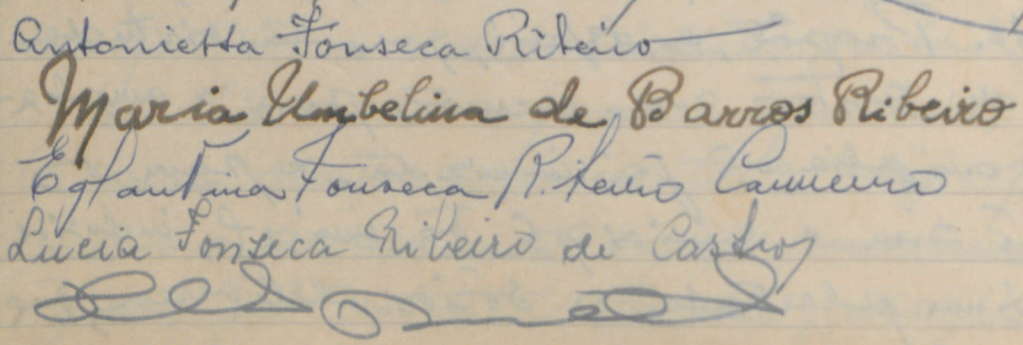 Antonietta Fonseca Ribeiro
Maria Umbelina de Barros Ribeiro
Eglantina Fonseca Ribeiro Carneiro
Lucia Fonseca Ribeiro de Castro